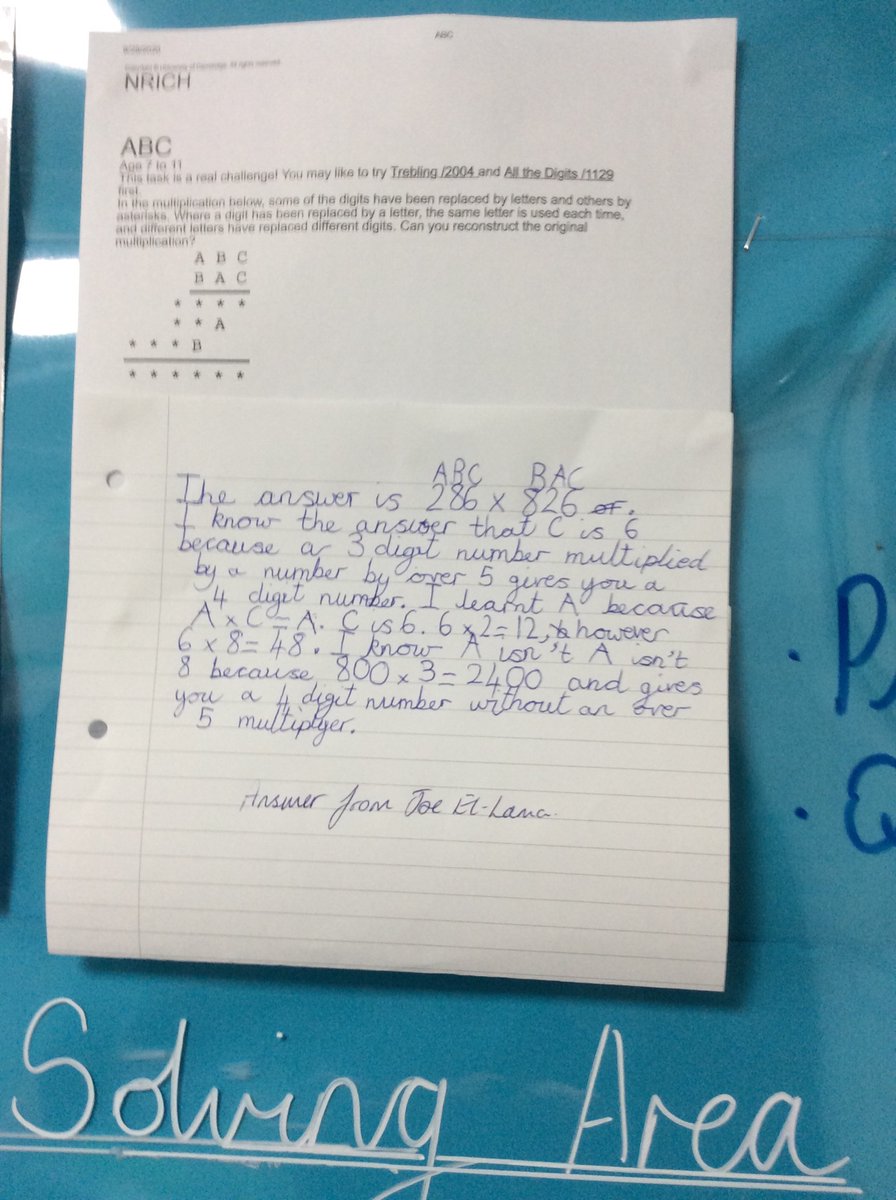 ABC
NRICH
ABC
Age 7 to 11
This task is a real challenge! You may like to try Trebling /2004 and All the Digits /1129
first.
In the multiplication below, some of the digits have been replaced by letters and others by
asterisks. Where a digit has been replaced by a letter, the same letter is used each time,
and different letters have replaced different digits. Can you reconstruct the original
multiplication?
A B C
B A C
* * * *
* * A
* * * B
* * * * * *
ABC BAC
The answer is 286 x 826 .
I know the answer that C is 6
because a 3 digit number multiplied
by a number by over 5 gives you a
4 digit number. I learnt A because
A x C = A. C is 6. 6 x 2 = 12, however
6 x 8 = 48. I know A isn't A isn't
8 because 800 x 3 = 2400 and gives
you a 4 digit number without an over
5 multiplyer.
Answer from Joe El-Lama.
Solving Area